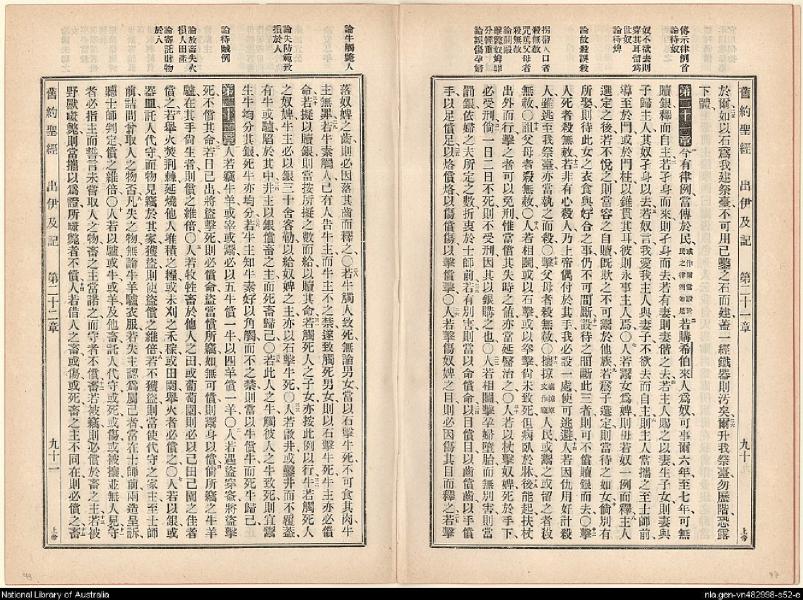 舊約聖經 出伊及記 第二十一章 九十 上帝
於爾如以石爲我建祭臺不可用已鑿之石而建蓋一經鐵器則汚矣爾升我祭臺勿歷階恐露
下體
傳示律例首
論待奴
奴不欲去則
穿其耳留爲
世奴
論待婢
論故殺誤殺
拐帶人口者
殺無赦
咒罵父母者
殺無赦
論相毆
擊斃奴婢非
分輕重
論誤傷孕婦
第二十一章 今有律例當傳於民若購希伯來人爲奴可事爾六年至七年可無
贖銀釋而自主若孑身而來則孑身而去若有妻則妻偕之去若主人賜之以妻生子女則妻與
子歸主人其奴孑身以去若奴言我愛我主人與妻子不欲去而自主則主人當攜之至士師前
導至於門或於門柱以錐貫其耳彼則永事主人焉〇人若鬻女爲婢則毋若奴一例而釋主人
選定之後若不悅之則當容之自贖既欺之不可鬻於他族若爲子選定則當待之如女倘別有
所娶則待此女之衣食與好合之事仍不可間斷設待之而斷此三者則可不償贖銀而去〇擊
人死者殺無赦若非有心殺人乃上帝偶付於其手我必設一處使可逃避人若因仇用計殺
人雖逃至我祭臺亦當執之而殺〇擊父母者殺無赦〇拐掠人民或鬻之或留之者殺
無赦〇詛父母者殺無赦〇人若相鬭或以石擊或以拳擊尚未致死但病臥於牀後能起扶杖
出外而行擊之者可以免刑惟當償其失時之值亦當延醫治之〇人若以杖擊奴婢死於手下
必受刑倘一日二日不死則不受刑因其以銀購之也〇人若相鬭擊孕婦墮胎而無別害則當
罰銀依婦之夫所定之數折衷於士師前若有別害則當以命償命以目償目以齒償齒以手償
手以足償足以烙償烙以傷償傷以擊償擊〇人若擊傷奴婢之目則必因傷其目而釋之若擊
論牛觸斃人
論失防範致
損於人
論待賊例
論放畜失火
損人田產
論寄託財物
於人
落奴婢之齒則必因落其齒而釋之〇若牛觸人致死無論男女當以石擊牛死不可食其肉牛
主無罪若牛素觸人已有人告牛主而牛主不之禁遂致觸死男女則以石擊牛死牛主亦必償
命若擬以贖銀則當按所擬之數而給以贖其命若觸死人之子女亦按此例以行牛若觸死人
之奴婢牛主必以銀三十舍客勒以給奴婢之主亦以石擊牛死〇人若啟井或鑿井而不覆蓋
有牛或驢陷於其中井主以銀償畜之主而死畜歸己〇若此人之牛觸彼人之牛致死則宜鬻
生牛均分其銀死牛亦均分若牛主知牛素好以角觸而不之禁則當以牛償牛而死牛歸己
第二十二章 人若竊牛羊或宰或鬻必以五牛償一牛以四羊償一羊〇人若遇盜穿窬將盜擊
死不償其命若日已出將盜擊死則必償命盜當償所竊如無可償則鬻身以償所竊之牛羊
驢在其手尚生者則償之維倍〇人若牧牲畜於他人之田或葡萄園則必以己田己園之佳者
償之若舉火焚荆棘延燒他人堆積之糧或未刈之禾稼或田園舉火者必償之〇人若以銀或
器皿託人代守而物見竊於其家獲盜則使盜償之維倍若不獲盜則當使代守之家主至士師
前詰問曾取人之物否凡失之物無論牛羊驢衣服若失主認爲屬己者當在士師前兩造呈訴
聽士師判定償之維倍〇人若以驢或牛或羊及他畜託人代守或死或傷或被攘並無人見守
者必指主而誓言未嘗取人之物畜之主當諾之而守者不償畜若被竊則必償於畜之主若被
野獸噬斃則當攜以爲證所噬斃者不償人若借人之畜或傷或死畜之主不同在則必償之畜
舊約聖經 出伊及記 第二十二章 九十一 上帝
National Library of Australia
nla.gen-vn482998-s52-e